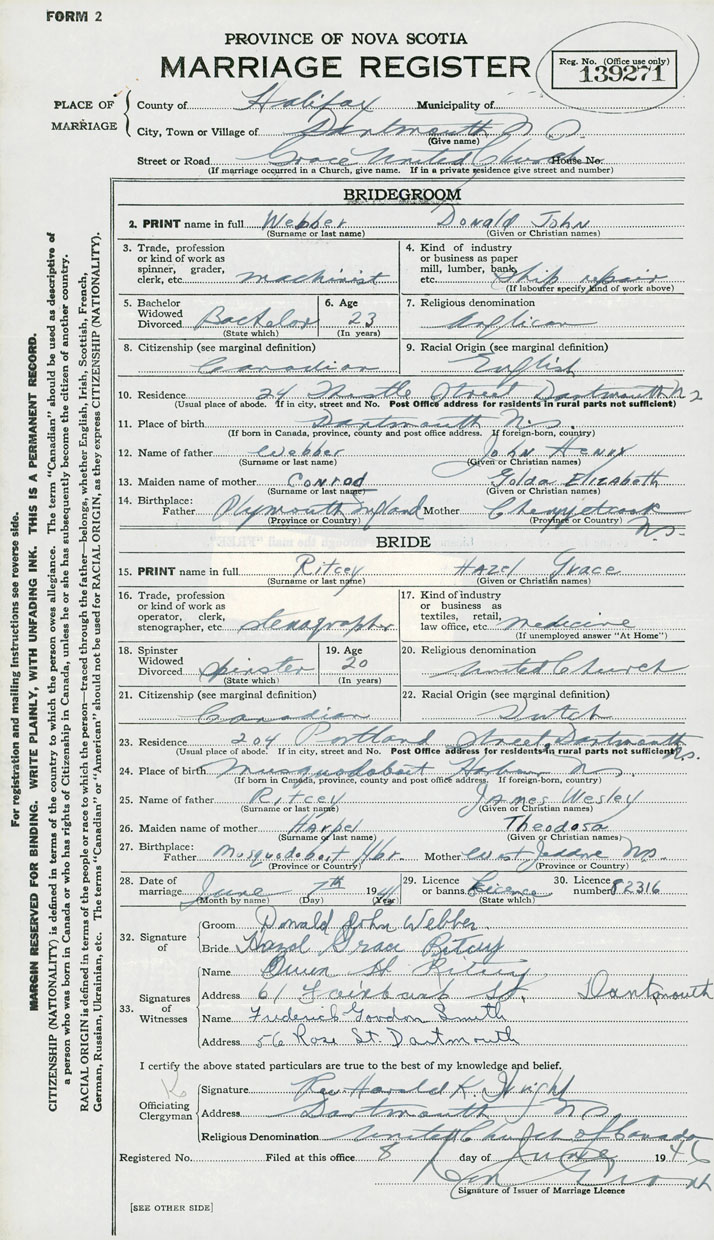 FORM 2
PROVINCE OF NOVA SCOTIA
MARRIAGE REGISTER
Reg. No. (Office use only)
139271
PLACE OF MARRIAGE
County of Halifax Municipality of
City, Town or Village of Dartmouth N.S.
(Give name)
Street or Road Grace United Church House No.
(If marriage occurred in a Church, give name. If in a private residence give street and number)
BRIDEGROOM
2. PRINT name in full Webber Donald John
(Surname or last name) (Given or Christian names)
3. Trade, profession or kind of work as spinner, grader, clerk, etc. machinist
4. Kind of industry or business as paper mill, lumber, bank, etc. Ship repair
(If labourer specify kind of work above)
5. Bachelor Widowed Divorced Bachelor
(State which)
6. Age 23
(In years)
7. Religious denomination Anglican
8. Citizenship (see marginal definition) Canadian
9. Racial Origin (see marginal definition) English
10. Residence 24 Street Dartmouth N S
(Usual place of abode. If in city, street and No. Post Office address for residents in rural parts not sufficient)
11. Place of birth Dartmouth N.S.
(If born in Canada, province, county and post office address. If foreign-born, country)
12. Name of father Webber John Henry
(Surname or last name) (Given or Christian names)
13. Maiden name of mother Conrod Golda Elizabeth
(Surname or last name) (Given or Christian names)
14. Birthplace: Father Plymouth England Mother Chezzetcook NS.
(Province or Country) (Province or Country)
BRIDE
15. PRINT name in full Ritcey Hazel Grace
(Surname or last name) (Given or Christian names)
16. Trade, profession or kind of work as operator, clerk, stenographer, etc. stenographer
17. Kind of industry or business as textiles, retail, law office, etc. medicine
(If unemployed answer "At Home")
18. Spinster Widowed Divorced spinster
(State which)
19. Age 20
(In years)
20. Religious denomination United Church
21. Citizenship (see marginal definition) Canadian
22. Racial Origin (see marginal definition) Dutch
23. Residence 204 Portland Street, Dartmouth N.S.
(Usual place of abode. If in city, street and No. Post Office address for residents in rural parts not sufficient)
24. Place of birth Musquodoboit Harbour N.S.
(If born in Canada, province, county and post office address. If foreign-born, country)
25. Name of father Ritcey James Wesley
(Surname or last name) (Given or Christian names)
26. Maiden name of mother Harpel Theodosa
(Surname or last name) (Given or Christian names)
27. Birthplace: Father Musquodoboit Hbr. Mother West NS.
(Province or Country) (Province or Country)
28. Date of marriage June 7th 19
(Month by name) (Day) (Year)
29. Licence or banns Licence
(State which)
30. Licence number 82316
32. Signature of
Groom Donald John Webber
Bride Hazel Grace Ritcey
33. Signatures of Witnesses
Name Ritcey
Address 61 Fairbank St. Dartmouth
Name Frederick Gordon Smith
Address 56 Rose St. Dartmouth
I certify the above stated particulars are true to the best of my knowledge and belief.
Officiating Clergyman
Signature Rev. Harold K.
Address Dartmouth NS
Religious Denomination United Church of Canada
Registered No. Filed at this office 8 day of June 1946
Signature of Issuer of Marriage Licence
[SEE OTHER SIDE]
For registration and mailing instructions see reverse side.
MARGIN RESERVED FOR BINDING. WRITE PLAINLY, WITH UNFADING INK. THIS IS A PERMANENT RECORD.
CITIZENSHIP (NATIONALITY) is defined in terms of the country to which the person owes allegiance. The term "Canadian" should be used as descriptive of
a person who was born in Canada or who has rights of Citizenship in Canada, unless he or she has subsequently become the citizen of another country.
RACIAL ORIGIN is defined in terms of the people or race to which the person—traced through the father—belongs, whether English, Irish, Scottish, French,
German, Russian, Ukrainian, etc. The terms "Canadian" or "American" should not be used for RACIAL ORIGIN, as they express CITIZENSHIP (NATIONALITY).